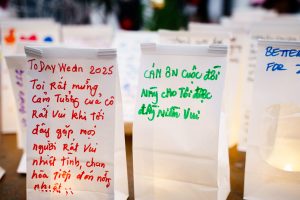 TODAY Wedn 2025
Tôi Rất mừng
cảm Tưởng của cô
Rất Vui khi tới
đây gặp mọi
người Rất Vui
nhiệt tình, chan
hòa tiếp đón nồng
nhiệt
CÁM ƠN CUỘC ĐỜI
Này cho Tôi được
đầy Niềm Vui
BETTER
FOR